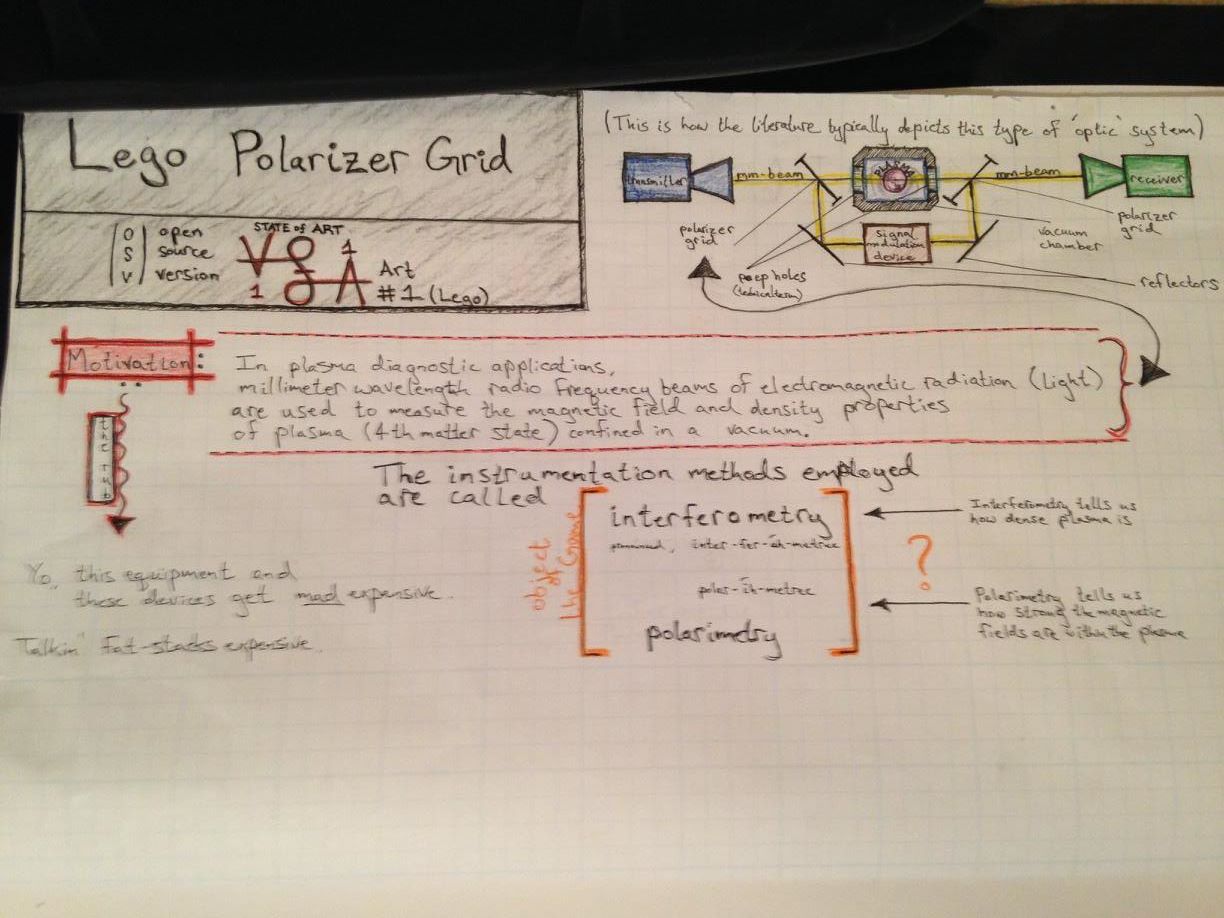 Lego Polarizer Grid
O open
S source
V version
STATE of ART
V&A
1 1
Art
#1 (Lego)
(This is how the literature typically depicts this type of 'optic' system)
transmitter
mm-beam
PLASMA
mm-beam
receiver
polarizer
grid
signal
modulation
device
vacuum
chamber
polarizer
grid
peep holes
(technical term)
reflectors
Motivation:
In plasma diagnostic applications,
millimeter wavelength radio frequency beams of electromagnetic radiation (Light)
are used to measure the magnetic field and density properties
of plasma (4th matter state) confined in a vacuum.
the rub
The instrumentation methods employed
are called
object
of
the Game
interferometry
pronounced, inter-fer-ah-metree
polar-ih-metree
polarimetry
Interferometry tells us
how dense plasma is
?
Polarimetry tells us
how strong the magnetic
fields are within the plasma
Yo, this equipment and
these devices get mad expensive.
Talkin' Fat-stacks expensive.